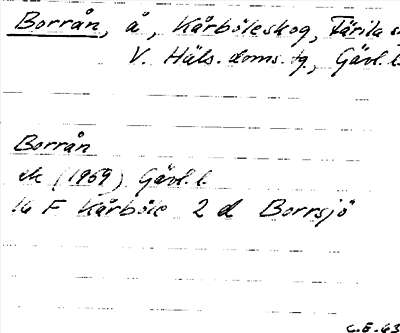 Borrån, å, Kårböleskog, Färila s
V. Häls. doms. tg, Gävl. l.
Borrån
ek (1969) Gävl. l.
16 F Kårböle 2 d Borrsjö
C.E. 63